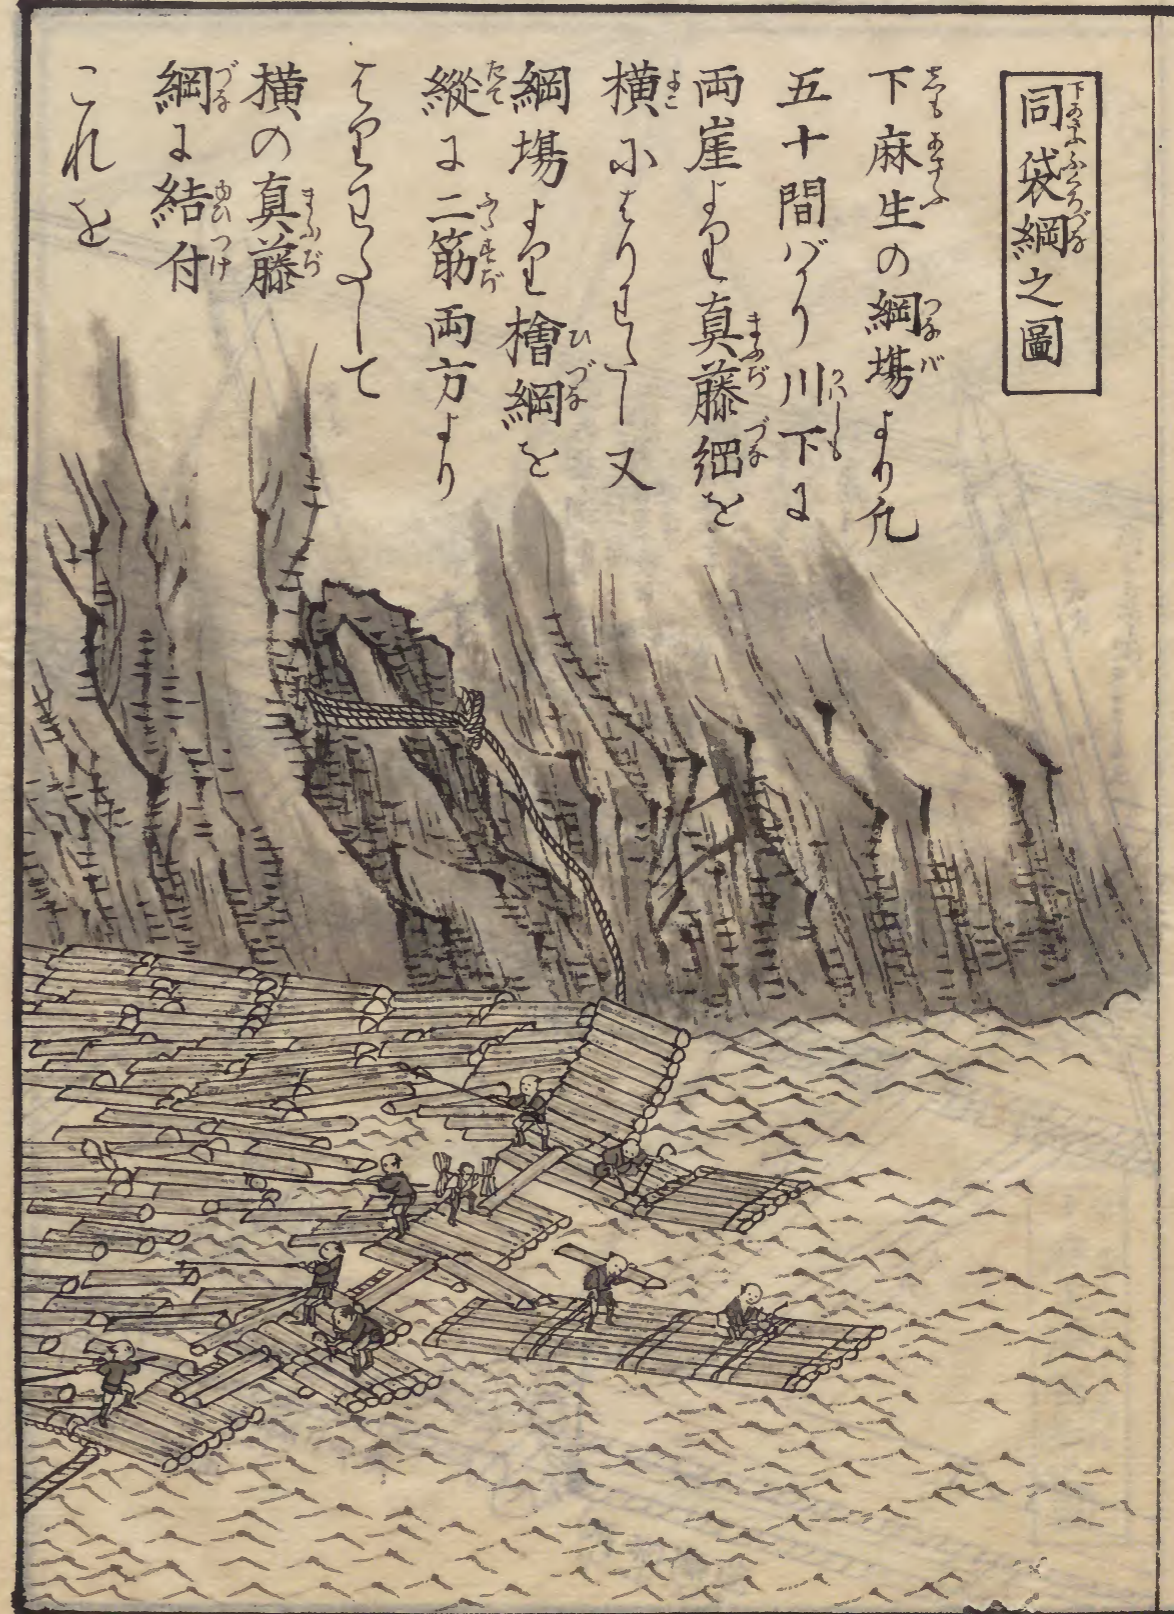 同袋綱之圖
下麻生の綱塲より凡
五十間バかり川下に
両崖より真藤綱を
横にはりわたし又
綱塲より檜綱を
縱に二筋両方より
はりわたして
横の真藤
綱に結付
これを